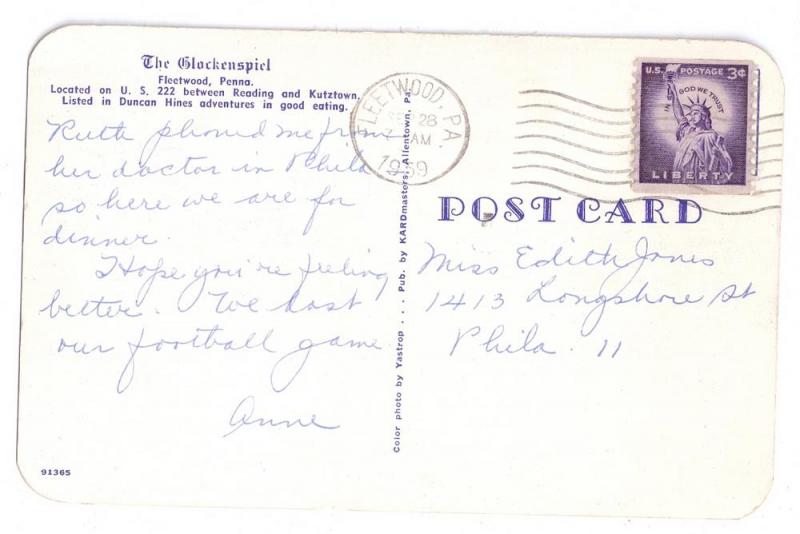 The Glockenspiel
Fleetwood, Penna.
Located on U. S. 222 between Reading and Kutztown.
Listed in Duncan Hines adventures in good eating.
Ruth phoned me from
her doctor in Phila
so here we are for
dinner.
Hope you're feeling
better. We lost
our football game
Anne
91365
Color photo by Yastrop . . . Pub. by KARDmasters, Allentown, Pa.
FLEETWOOD, PA.
28
AM
1959
U.S. POSTAGE 3¢
IN GOD WE TRUST
LIBERTY
POST CARD
Miss Edith Jones
1413 Longshore St
Phila. 11